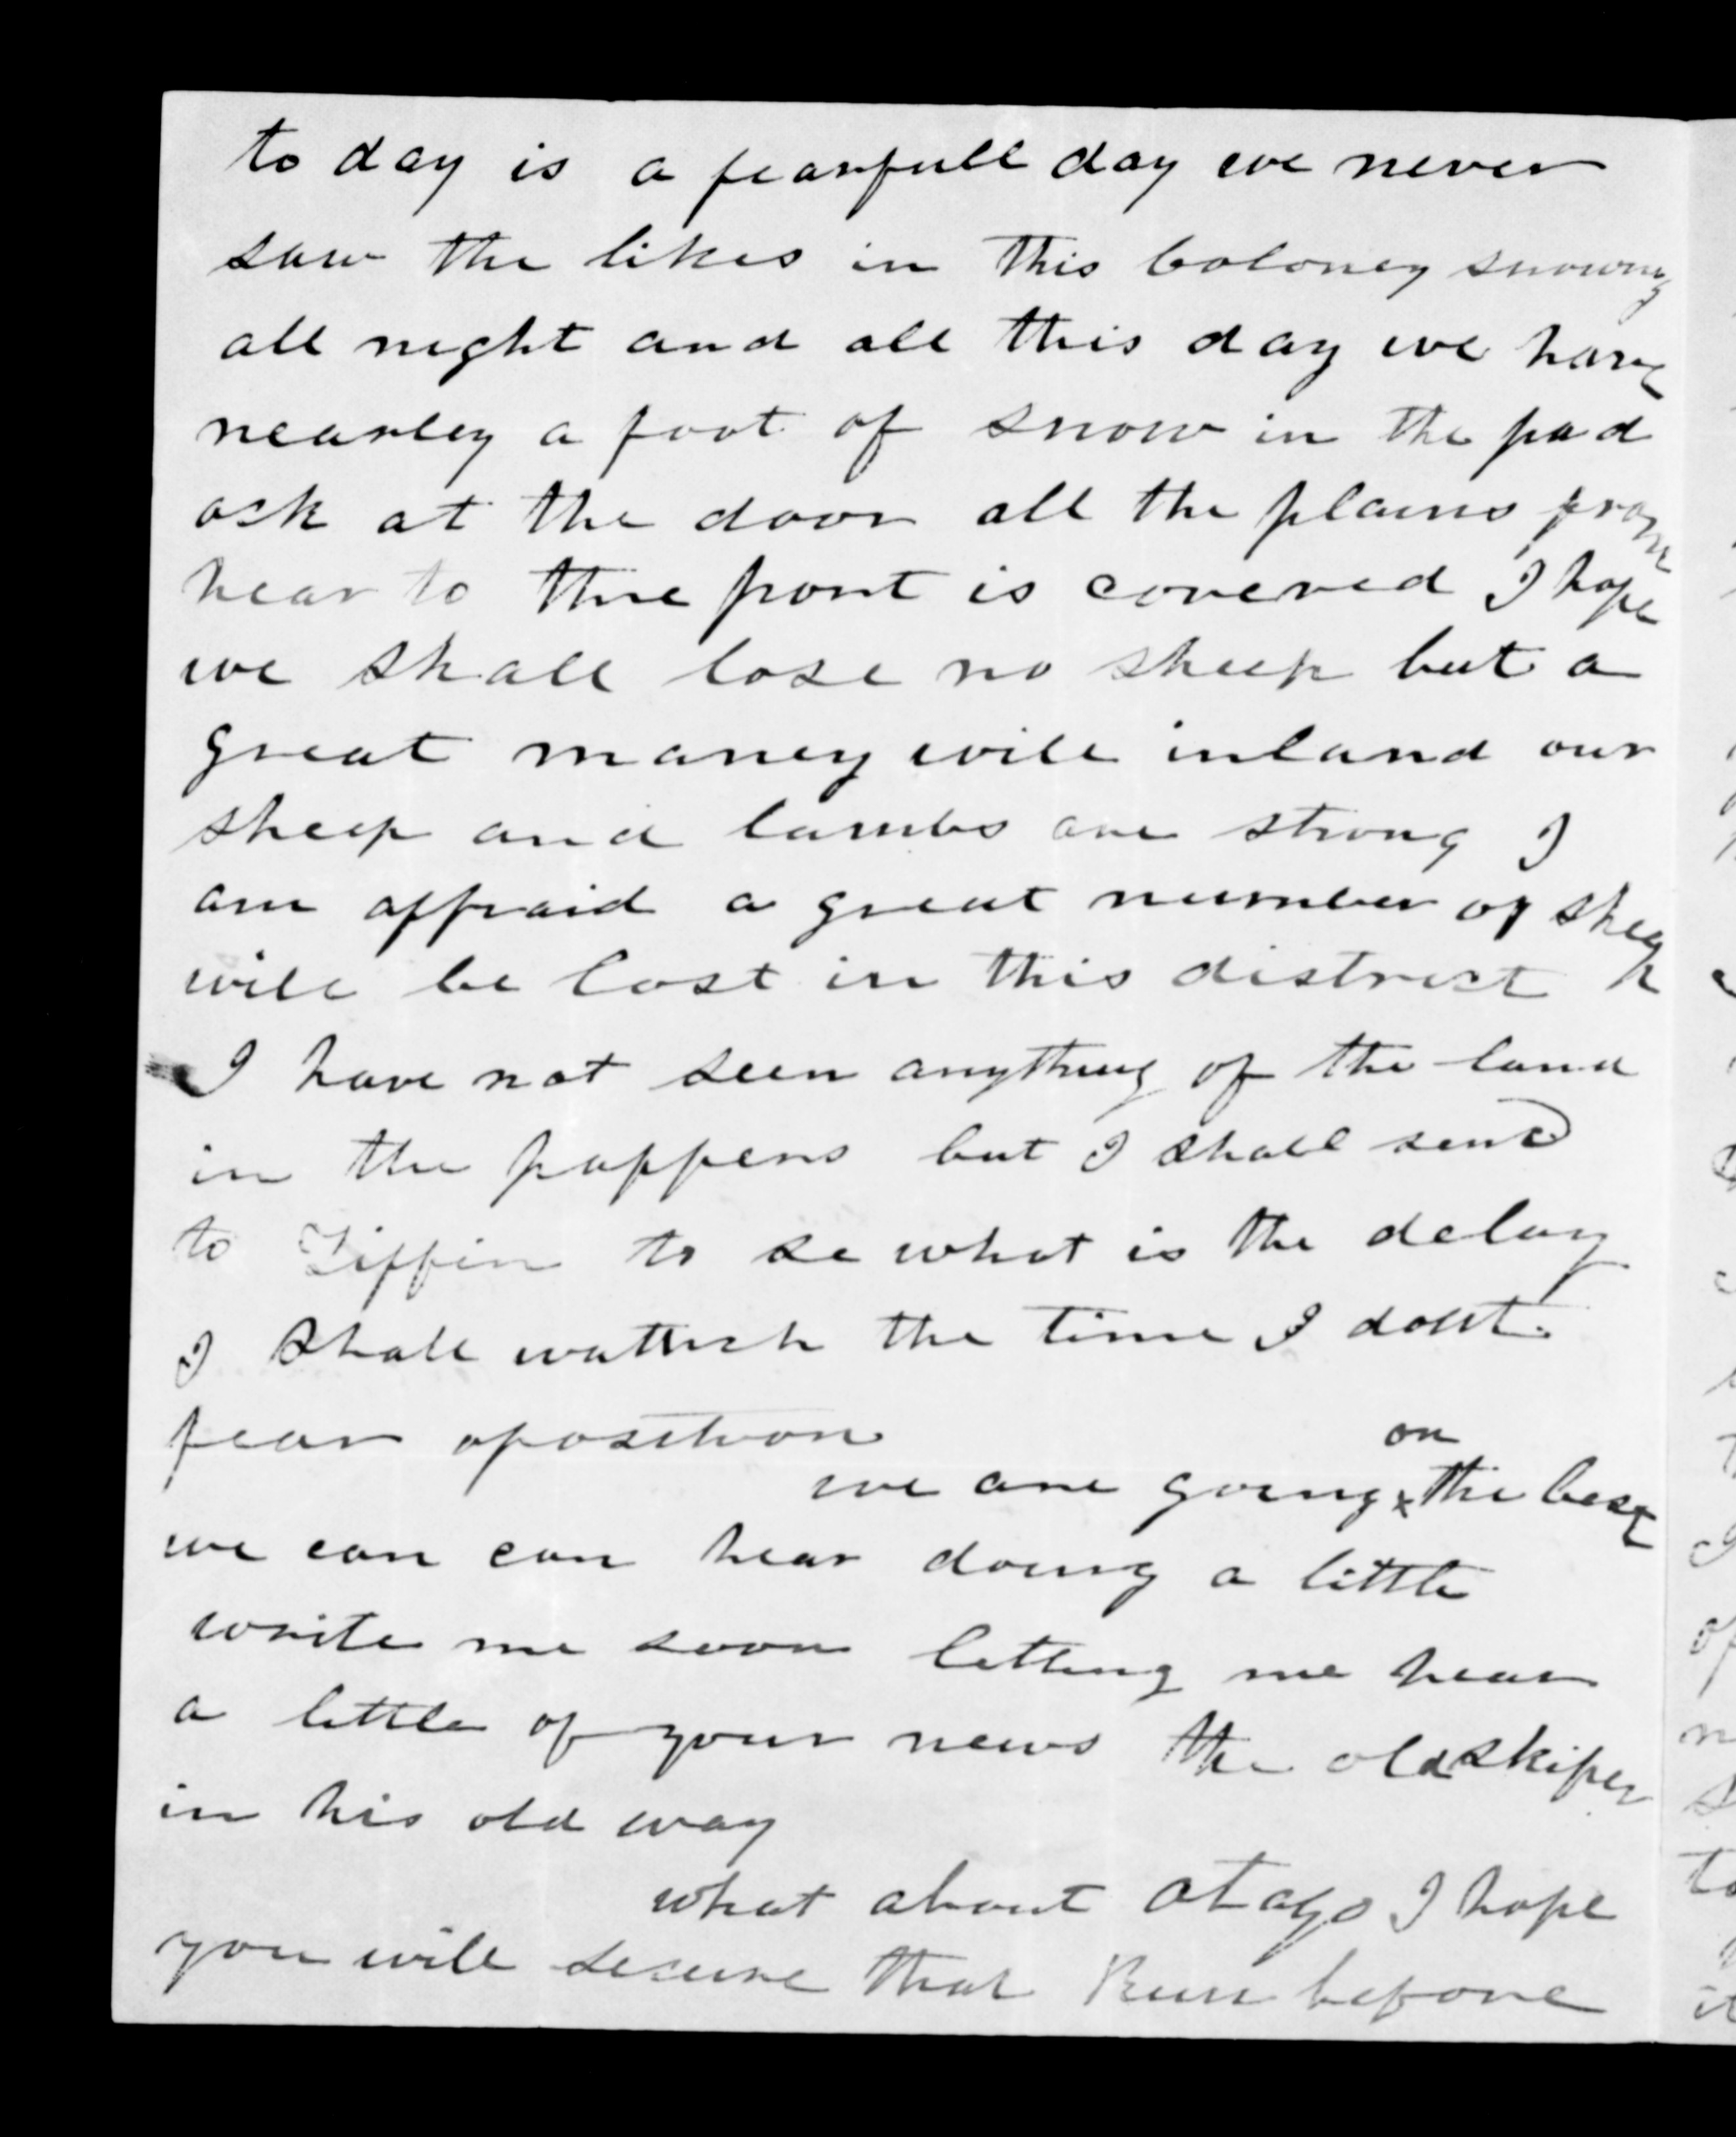 to day is a fearfull day we never
saw the likes in this coloney snowing
all night and all this day we have
nearley a foot of snow in the pad
ock at the door all the plains from
hear to the front is covered I hope
we shall lose no sheep but a
great maney will inland our
sheep and lambs are strong I
am affraid a great number of sheep
will be lost in this district
I have not seen anything of the land
in the pappers but I shall send
to Tiffin to se what is the delay
I shall wattsch the time I dont
fear oposition
we are going on the best
we can can hear doing a little
write me soon letting me hear
a little of your news the old skiper
in his old way
what about otago I hope
you will secure that Run before